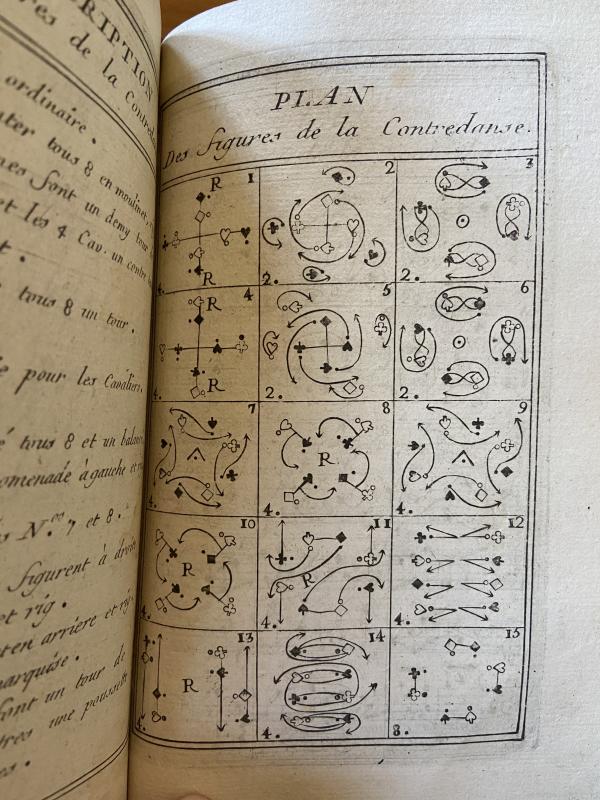 RIPTION
res de la Contred
ordinaire.
ter tous 8 en moulinet
nes font un demy tour
et les 4 Cav. un contre
t.
tous 8 un tour.
pour les Cavaliers.
é tous 8 et un balancé
omenade à gauche et
s N.os 7 et 8.
figurent à droite
et rig.
en arriere et rig.
arquise.
font un tour de
tres une poussette
es.
PLAN
Des figures de la Contredanse.
1 2 3
R
R
4. 2. 2.
4 5 6
R
R
4. 2. 2.
7 8 9
R
4. 4. 4.
10 11 12
R R
4. 4. 4.
13 14 15
R
4. 4. 8.